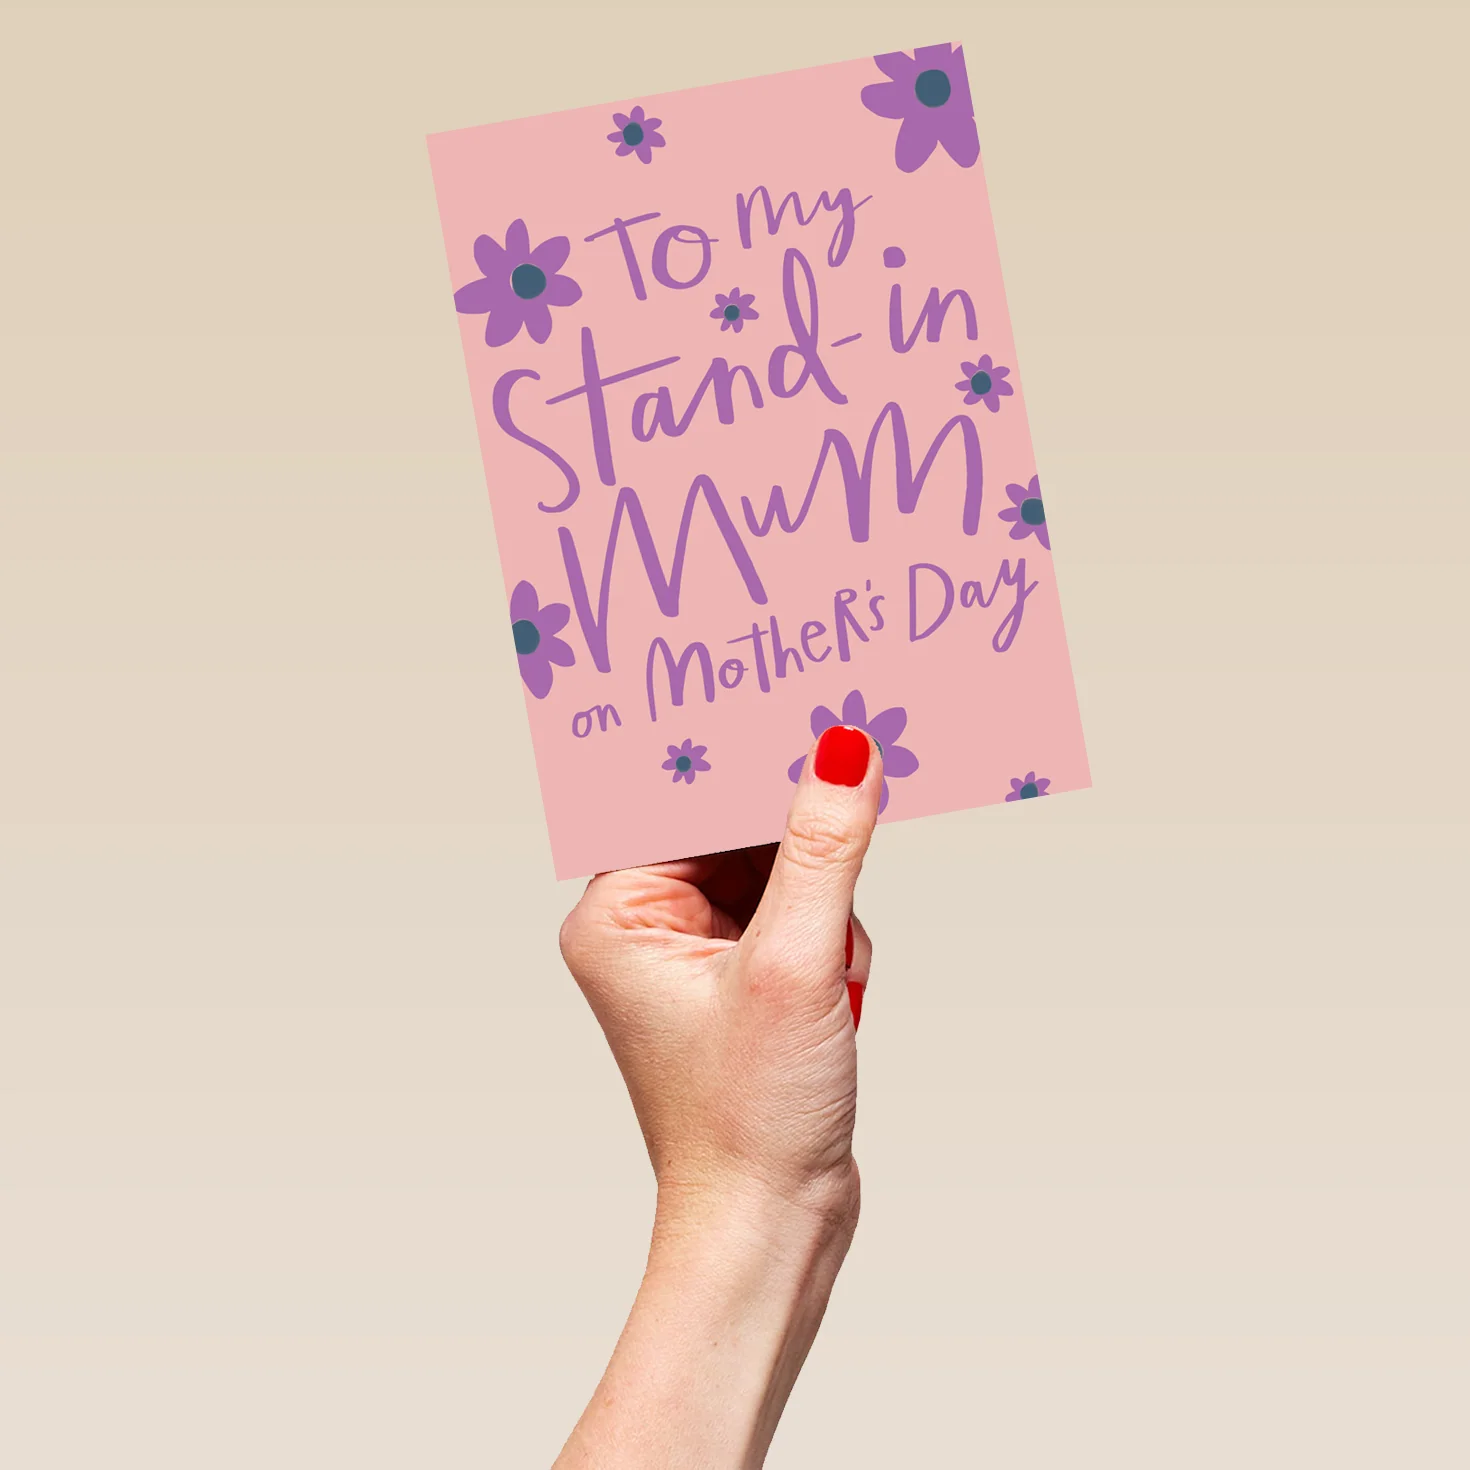 To my
Stand-in
MuM
on MotheR's Day